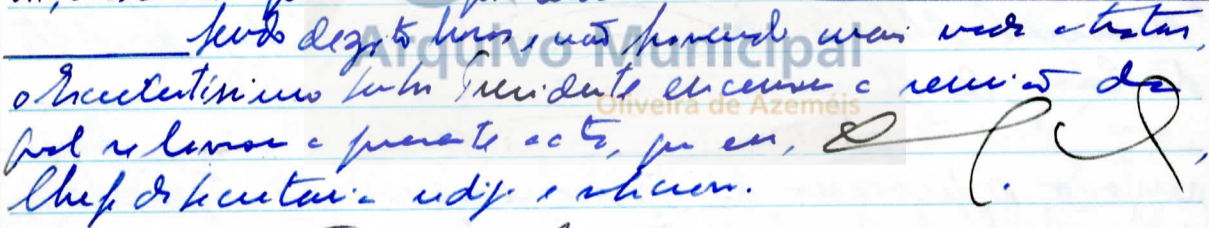 Sendo dezoito horas, e não havendo mais nada a tratar,
o Excelentíssimo Senhor Presidente encerrou a reunião da
qual se lavrou a presente acta, que eu,
Chefe de Secretaria redigi e subscrevo.
Arquivo Municipal
Oliveira de Azeméis